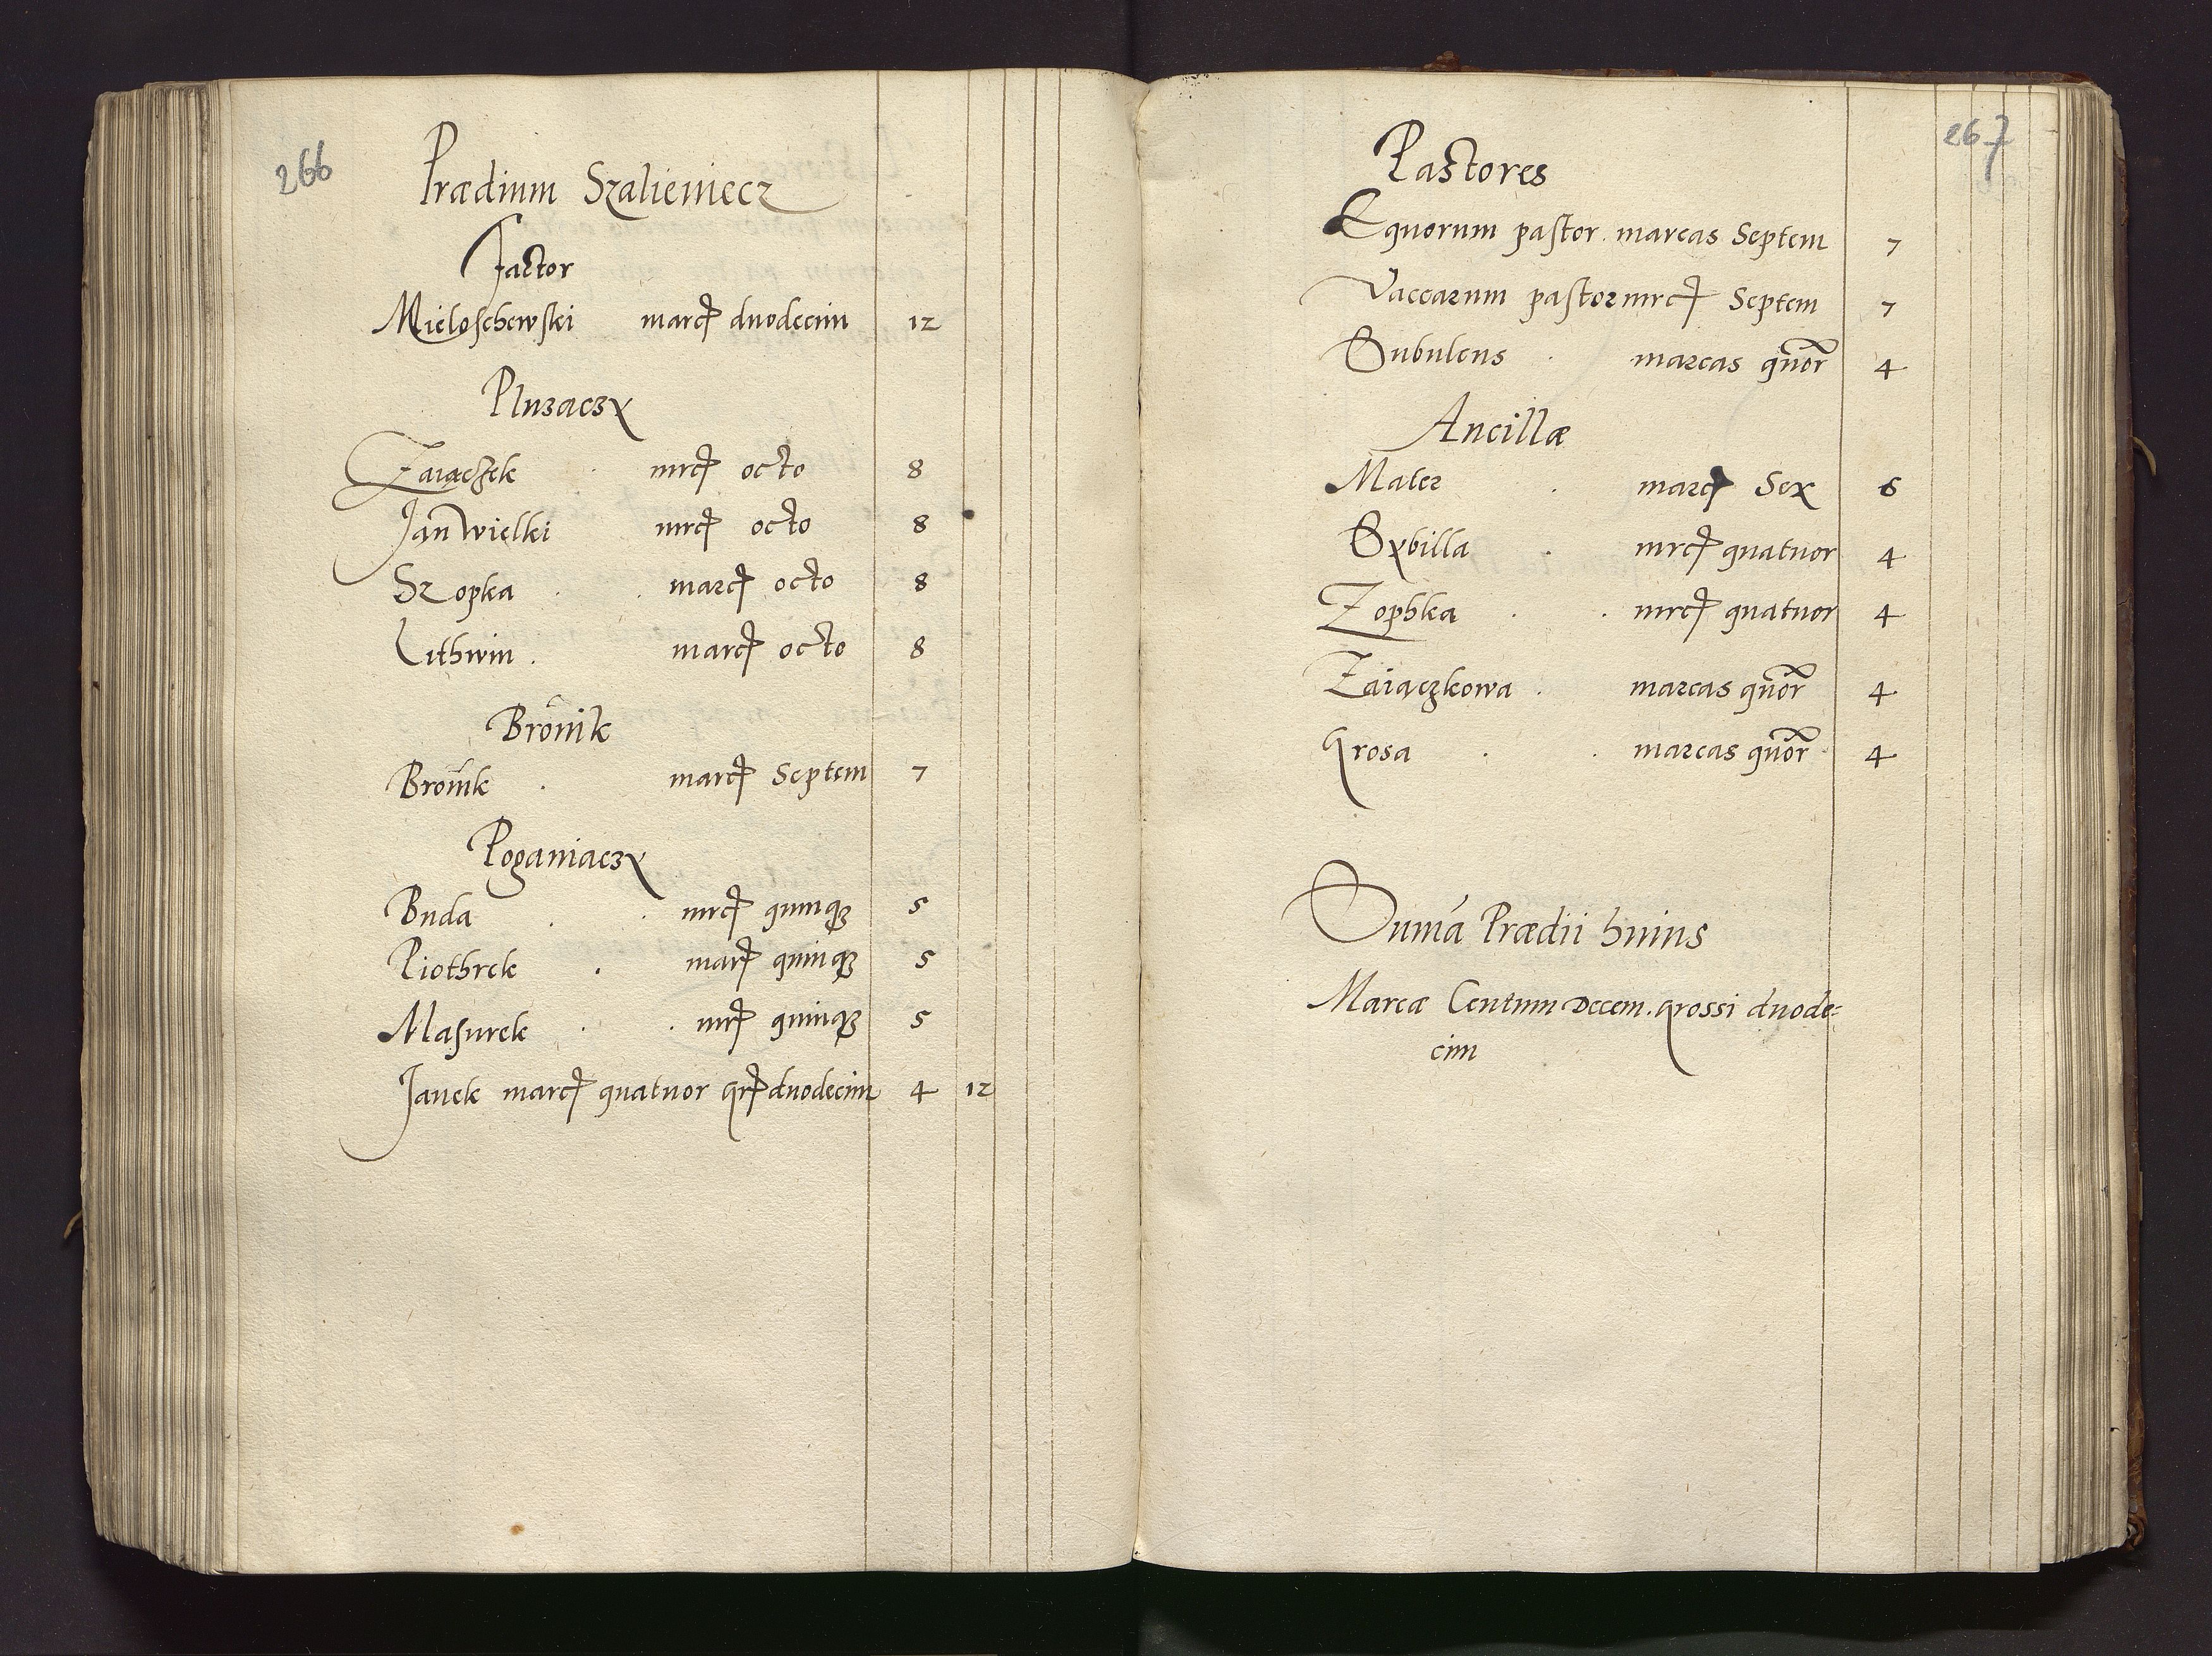 266
Prædium Szalieniecz
Factor
Mieloschewski marcȝ duodecim 12
Pluzaczy
Zaiączek mrcȝ octo 8
Jan Wielki mrcȝ octo 8
Szopka marcȝ octo 8
Lithwin . marcȝ octo 8
Bronik
Bronik . marcȝ Septem 7
Poganiaczy
Buda . mrcȝ quinqȝ 5
Piothrek . marȝ quinqȝ 5
Masurek . mrȝ quinqȝ 5
Janek marcȝ quatuor grȝ duodecim 4 12
267
Pastores
Equorum pastor . marcas Septem 7
Vaccarum pastor mrcȝ Septem 7
Subulcus . marcas quor 4
Ancillæ
Mater . marcȝ Sex 6
Sybilla . mrcȝ quatuor 4
Zophka . mrcȝ quatuor 4
Zaiączkowa . marcas quor 4
Grosa . marcas quor 4
Suma Prædii huius
Marcæ Centum Decem . grossi duode=
cim